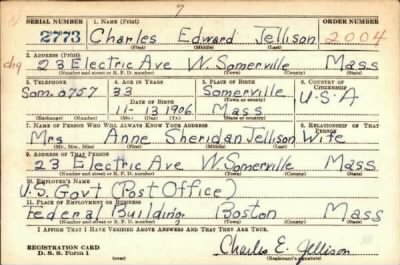 7
SERIAL NUMBER 1. NAME (Print) ORDER NUMBER
2773 Charles Edward Jellison 2004
(First) (Middle) (Last)
chg
2. ADDRESS (Print)
23 Electric Ave W. Somerville Mass
(Number and street or R. F. D. number) (Town) (County) (State)
3. TELEPHONE 4. AGE IN YEARS 5. PLACE OF BIRTH 6. COUNTRY OF CITIZENSHIP
Som-0757 33 Somerville
DATE OF BIRTH (Town or county) U.S.A
11-13 1906 Mass
(Mo.) (Day) (Yr.) (State or country)
7. NAME OF PERSON WHO WILL ALWAYS KNOW YOUR ADDRESS 8. RELATIONSHIP OF THAT PERSON
Mrs Anne Sheridan Jellison Wife
(Mr., Mrs., Miss) (First) (Middle) (Last)
9. ADDRESS OF THAT PERSON
23 Electric Ave W. Somerville Mass
(Number and street or R. F. D. number) (Town) (County) (State)
10. EMPLOYER'S NAME
U.S. Govt (Post Office)
11. PLACE OF EMPLOYMENT OR BUSINESS
Federal Building Boston Mass
(Number and street or R. F. D. number) (Town) (County) (State)
I AFFIRM THAT I HAVE VERIFIED ABOVE ANSWERS AND THAT THEY ARE TRUE.
REGISTRATION CARD
D. S. S. Form 1 Charles E. Jellison
(Registrant's signature)